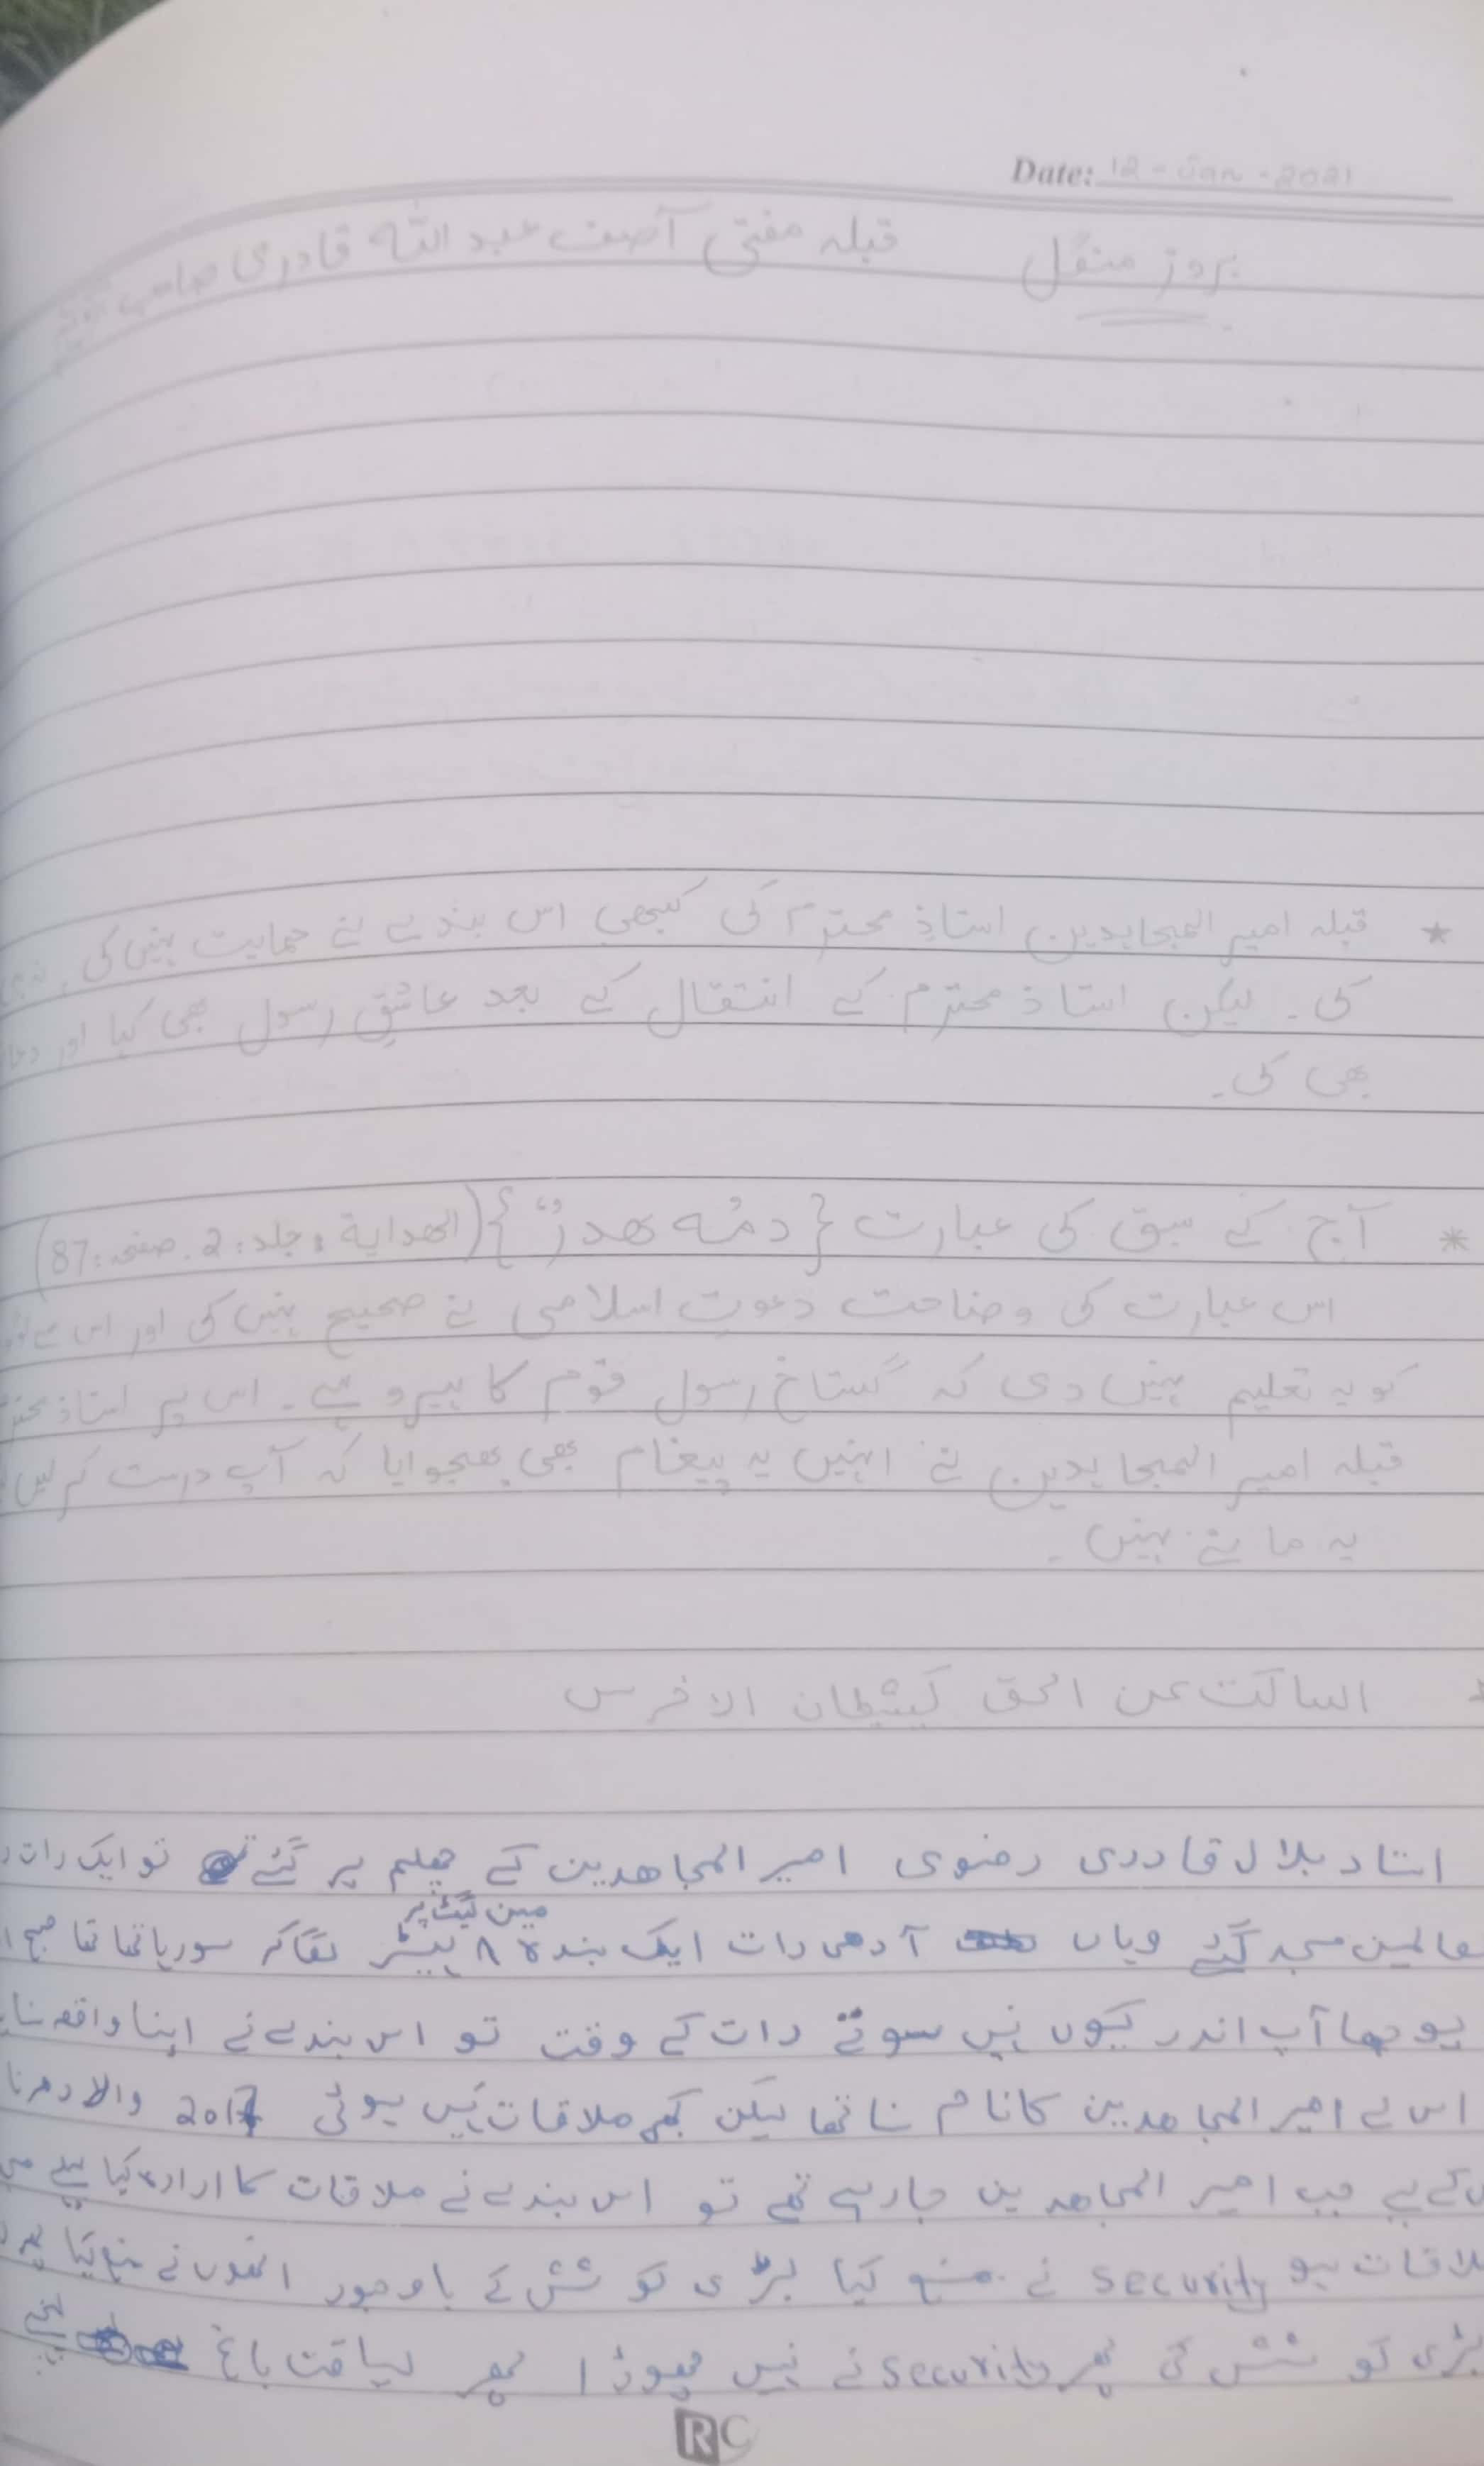 Date: 12 - Jan - 2021
بروز منگل قبلہ مفتی آصف عبد اللہ قادری صاحب
★ قبلہ امیر المجاہدین استاذِ محترم کی کبھی اس بندے نے حمایت نہیں کی
کی ۔ لیکن استاذ محترم کے انتقال کے بعد عاشقِ رسول بھی کہا اور دعا
بھی کی ۔
* آج کے سبق کی عبارت {دمُہ ھدرٌ} (الھدایة ، جلد : 2 . صفحہ : 87)
اس عبارت کی وضاحت دعوتِ اسلامی نے صحیح نہیں کی اور اس نے
کو یہ تعلیم نہیں دی کہ گستاخِ رسول قوم کا ہیرو ہے ۔ اس پر استاذ
قبلہ امیر المجاہدین نے انہیں یہ پیغام بھی بھجوایا کہ آپ درست کر لیں
یہ مانے نہیں ۔
الساکت عن الحق کشیطان الاخرس
استاد بلال قادری رضوی امیر المجاھدین کے چھلم پر گئے تو ایک رات
مسجد گئے وہاں آدھی رات ایک بندہ مین گیٹ پر بستر لگا کر سو رہا تھا صبح
پوچھا آپ اندر کیوں نہیں سوتے رات کے وقت تو اس بندے نے اپنا واقعہ
اس نے امیر المجاھدین کا نام سنا تھا لیکن کبھی ملاقات نہیں ہوئی 2017 والا دھرنا
کے لیے جب امیر المجاھدین جا رہے تھے تو اس بندے نے ملاقات کا ارادہ کیا پہلے
ملاقات ہو security نے منع کیا بڑی کوشش کے باوجود انھوں نے منع کیا
بڑی کوشش کی پھر security نے نہیں چھوڑا پھر لیاقت باغ
RC